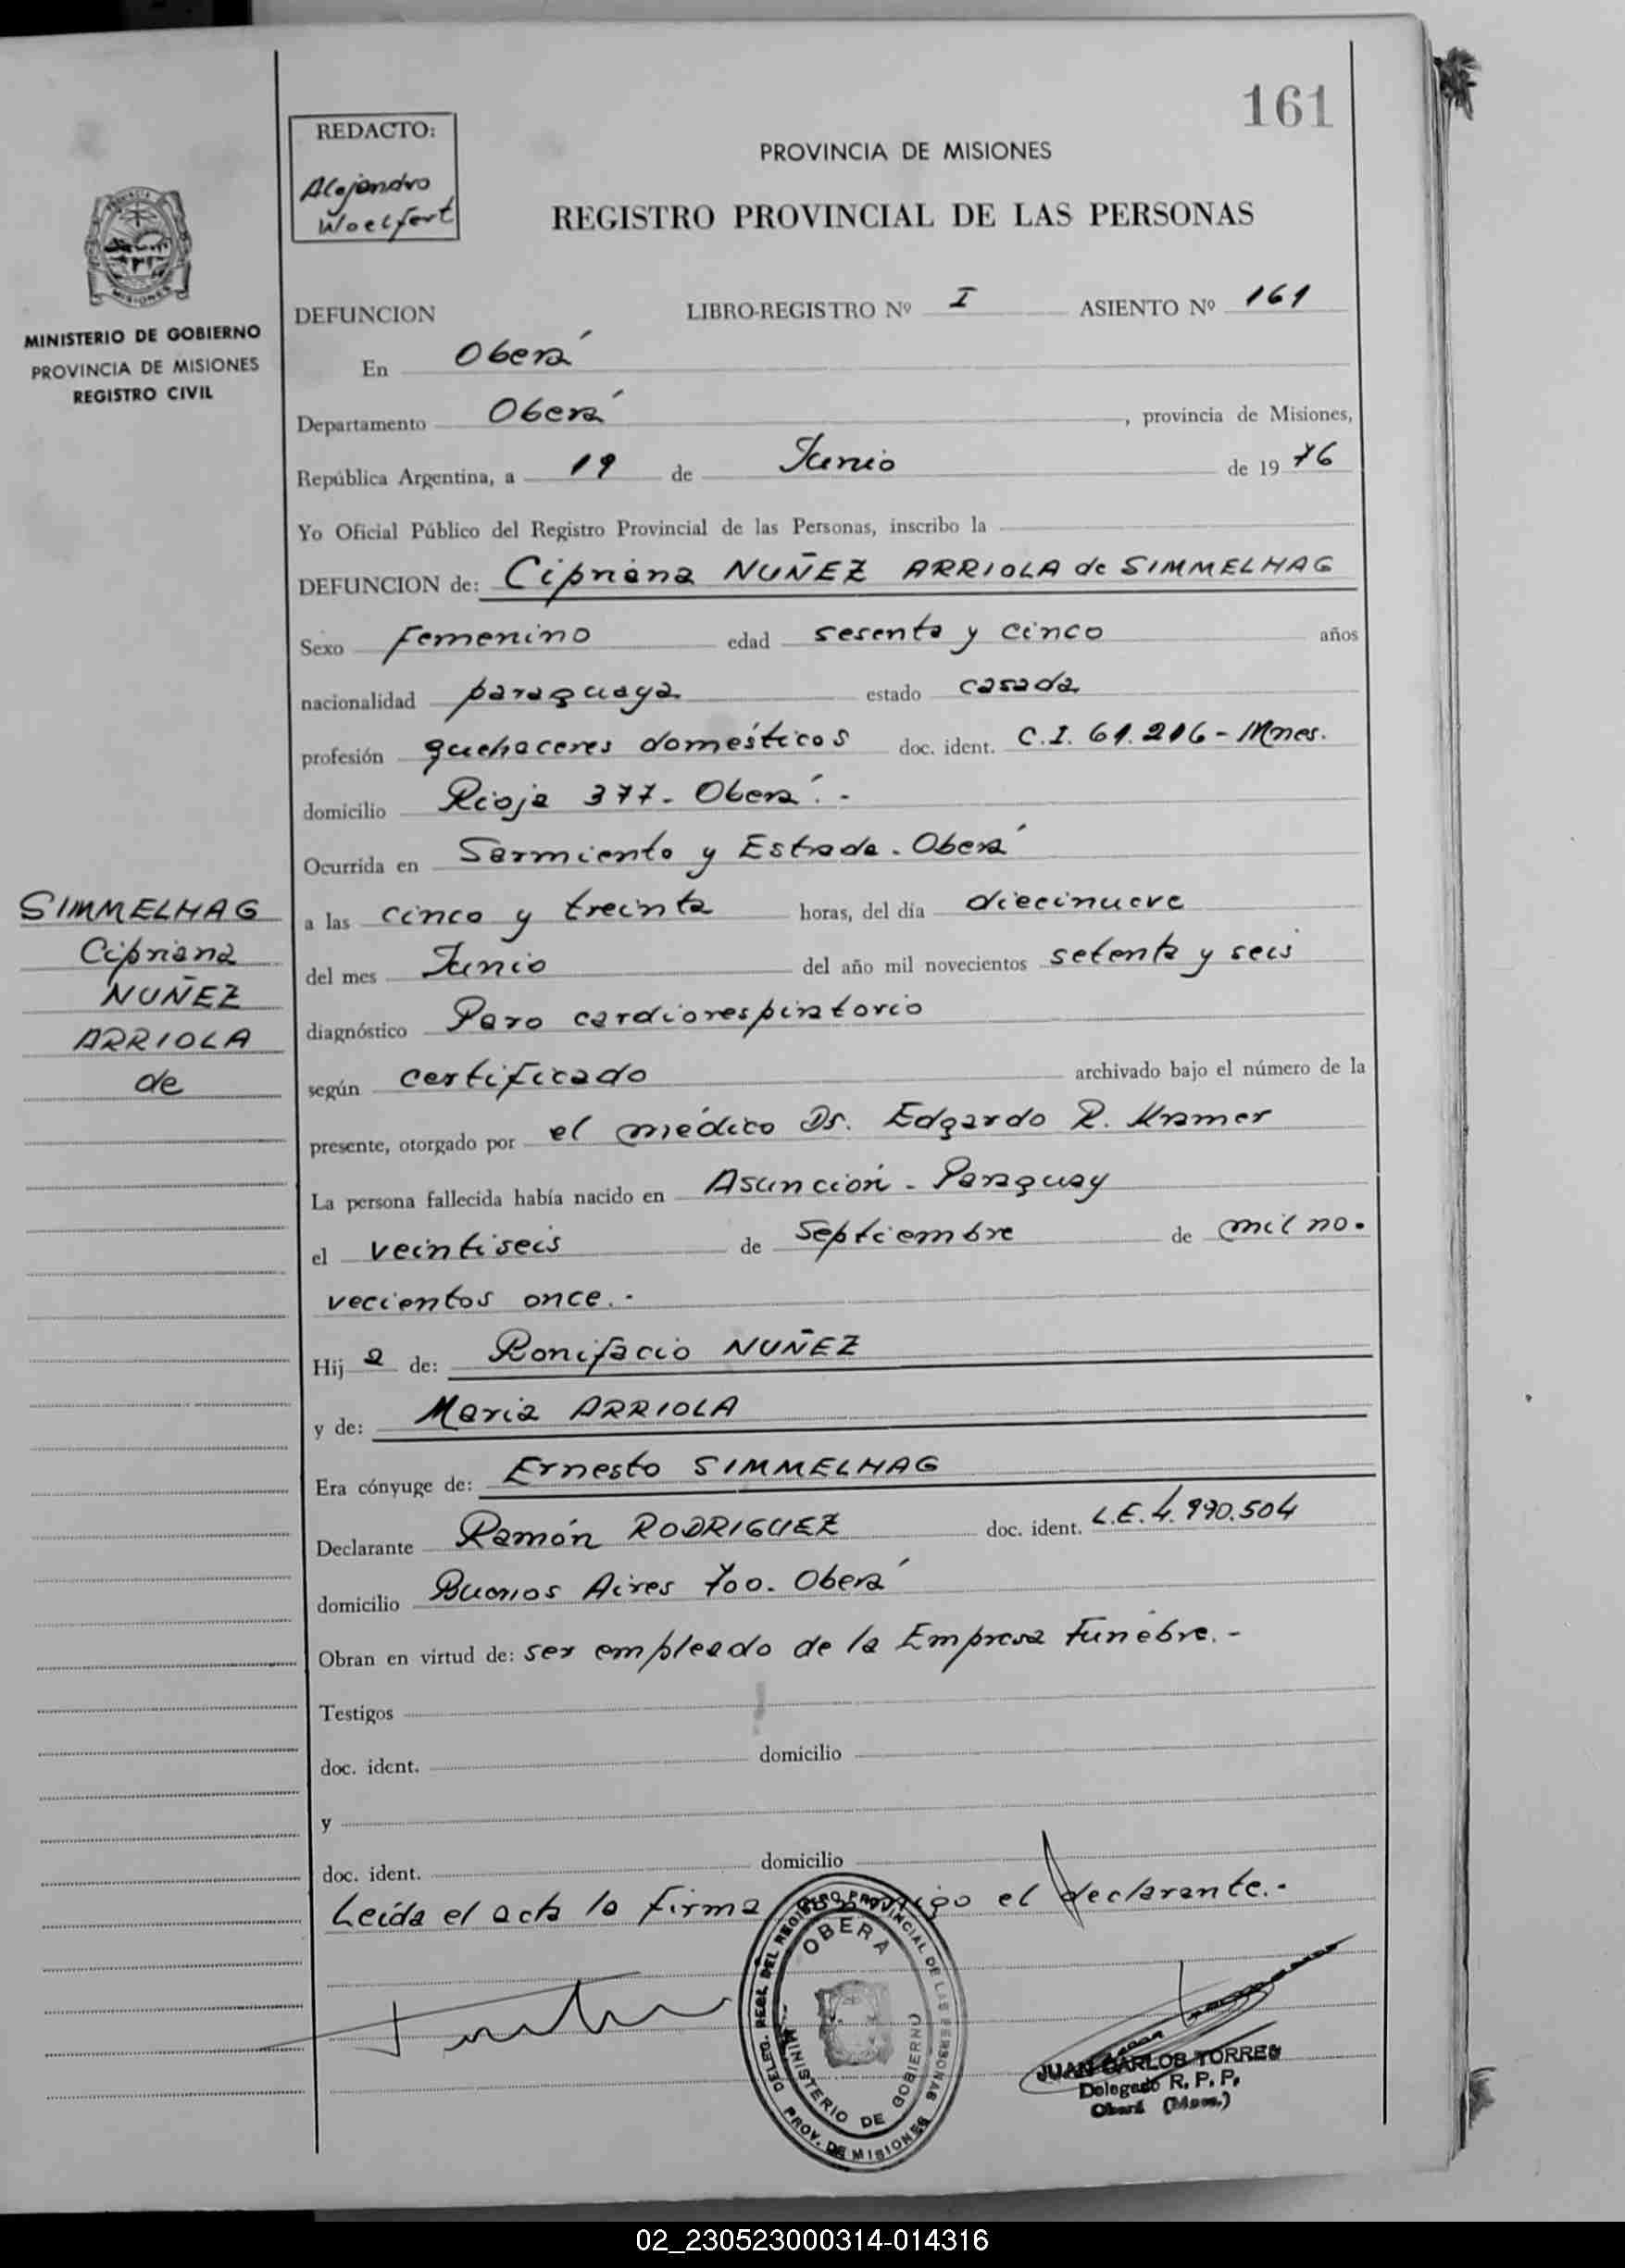 161
REDACTO:
Alejandro
Woelfert
PROVINCIA DE MISIONES
REGISTRO PROVINCIAL DE LAS PERSONAS
PROVINCIA
MISIONES
MINISTERIO DE GOBIERNO
PROVINCIA DE MISIONES
REGISTRO CIVIL
DEFUNCION LIBRO-REGISTRO Nº I ASIENTO Nº 161
En Oberá
Departamento Oberá, provincia de Misiones,
República Argentina, a 19 de Junio de 1976
Yo Oficial Público del Registro Provincial de las Personas, inscribo la
DEFUNCION de: Cipriana NUÑEZ ARRIOLA de SIMMELHAG
Sexo Femenino edad sesenta y cinco años
nacionalidad paraguaya estado casada
profesión quehaceres domésticos doc. ident. C.I. 61.216 - Mnes.
domicilio Rioja 377 - Oberá. -
Ocurrida en Sarmiento y Estrada - Oberá
a las cinco y treinta horas, del día diecinueve
del mes Junio del año mil novecientos setenta y seis
diagnóstico Paro cardiorespiratorio
según certificado archivado bajo el número de la
presente, otorgado por el médico Dr. Edgardo R. Kramer
La persona fallecida había nacido en Asunción - Paraguay
el veintiseis de Septiembre de mil no-
vecientos once. -
Hija de: Bonifacio NUÑEZ
y de: Maria ARRIOLA
Era cónyuge de: Ernesto SIMMELHAG
Declarante Ramón RODRIGUEZ doc. ident. L.E. 4.990.504
domicilio Buenos Aires 700 - Oberá
Obran en virtud de: ser empleado de la Empresa Fúnebre. -
Testigos
doc. ident. domicilio
y
doc. ident. domicilio
Leída el acta la firma conmigo el declarante. -
SIMMELHAG
Cipriana
NUÑEZ
ARRIOLA
de
DELEG. REGL DEL REGISTRO PROVINCIAL DE LAS PERSONAS
OBERA
MINISTERIO DE GOBIERNO
PROV. DE MISIONES
JUAN CARLOS TORRES
Delegado R. P. P.
Oberá (Mnes.)
02_230523000314-014316